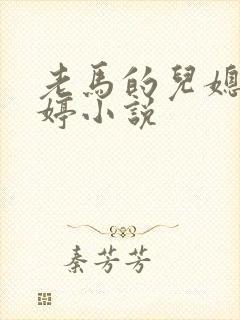 老馬的兒媳
婷小説
秦芳芳